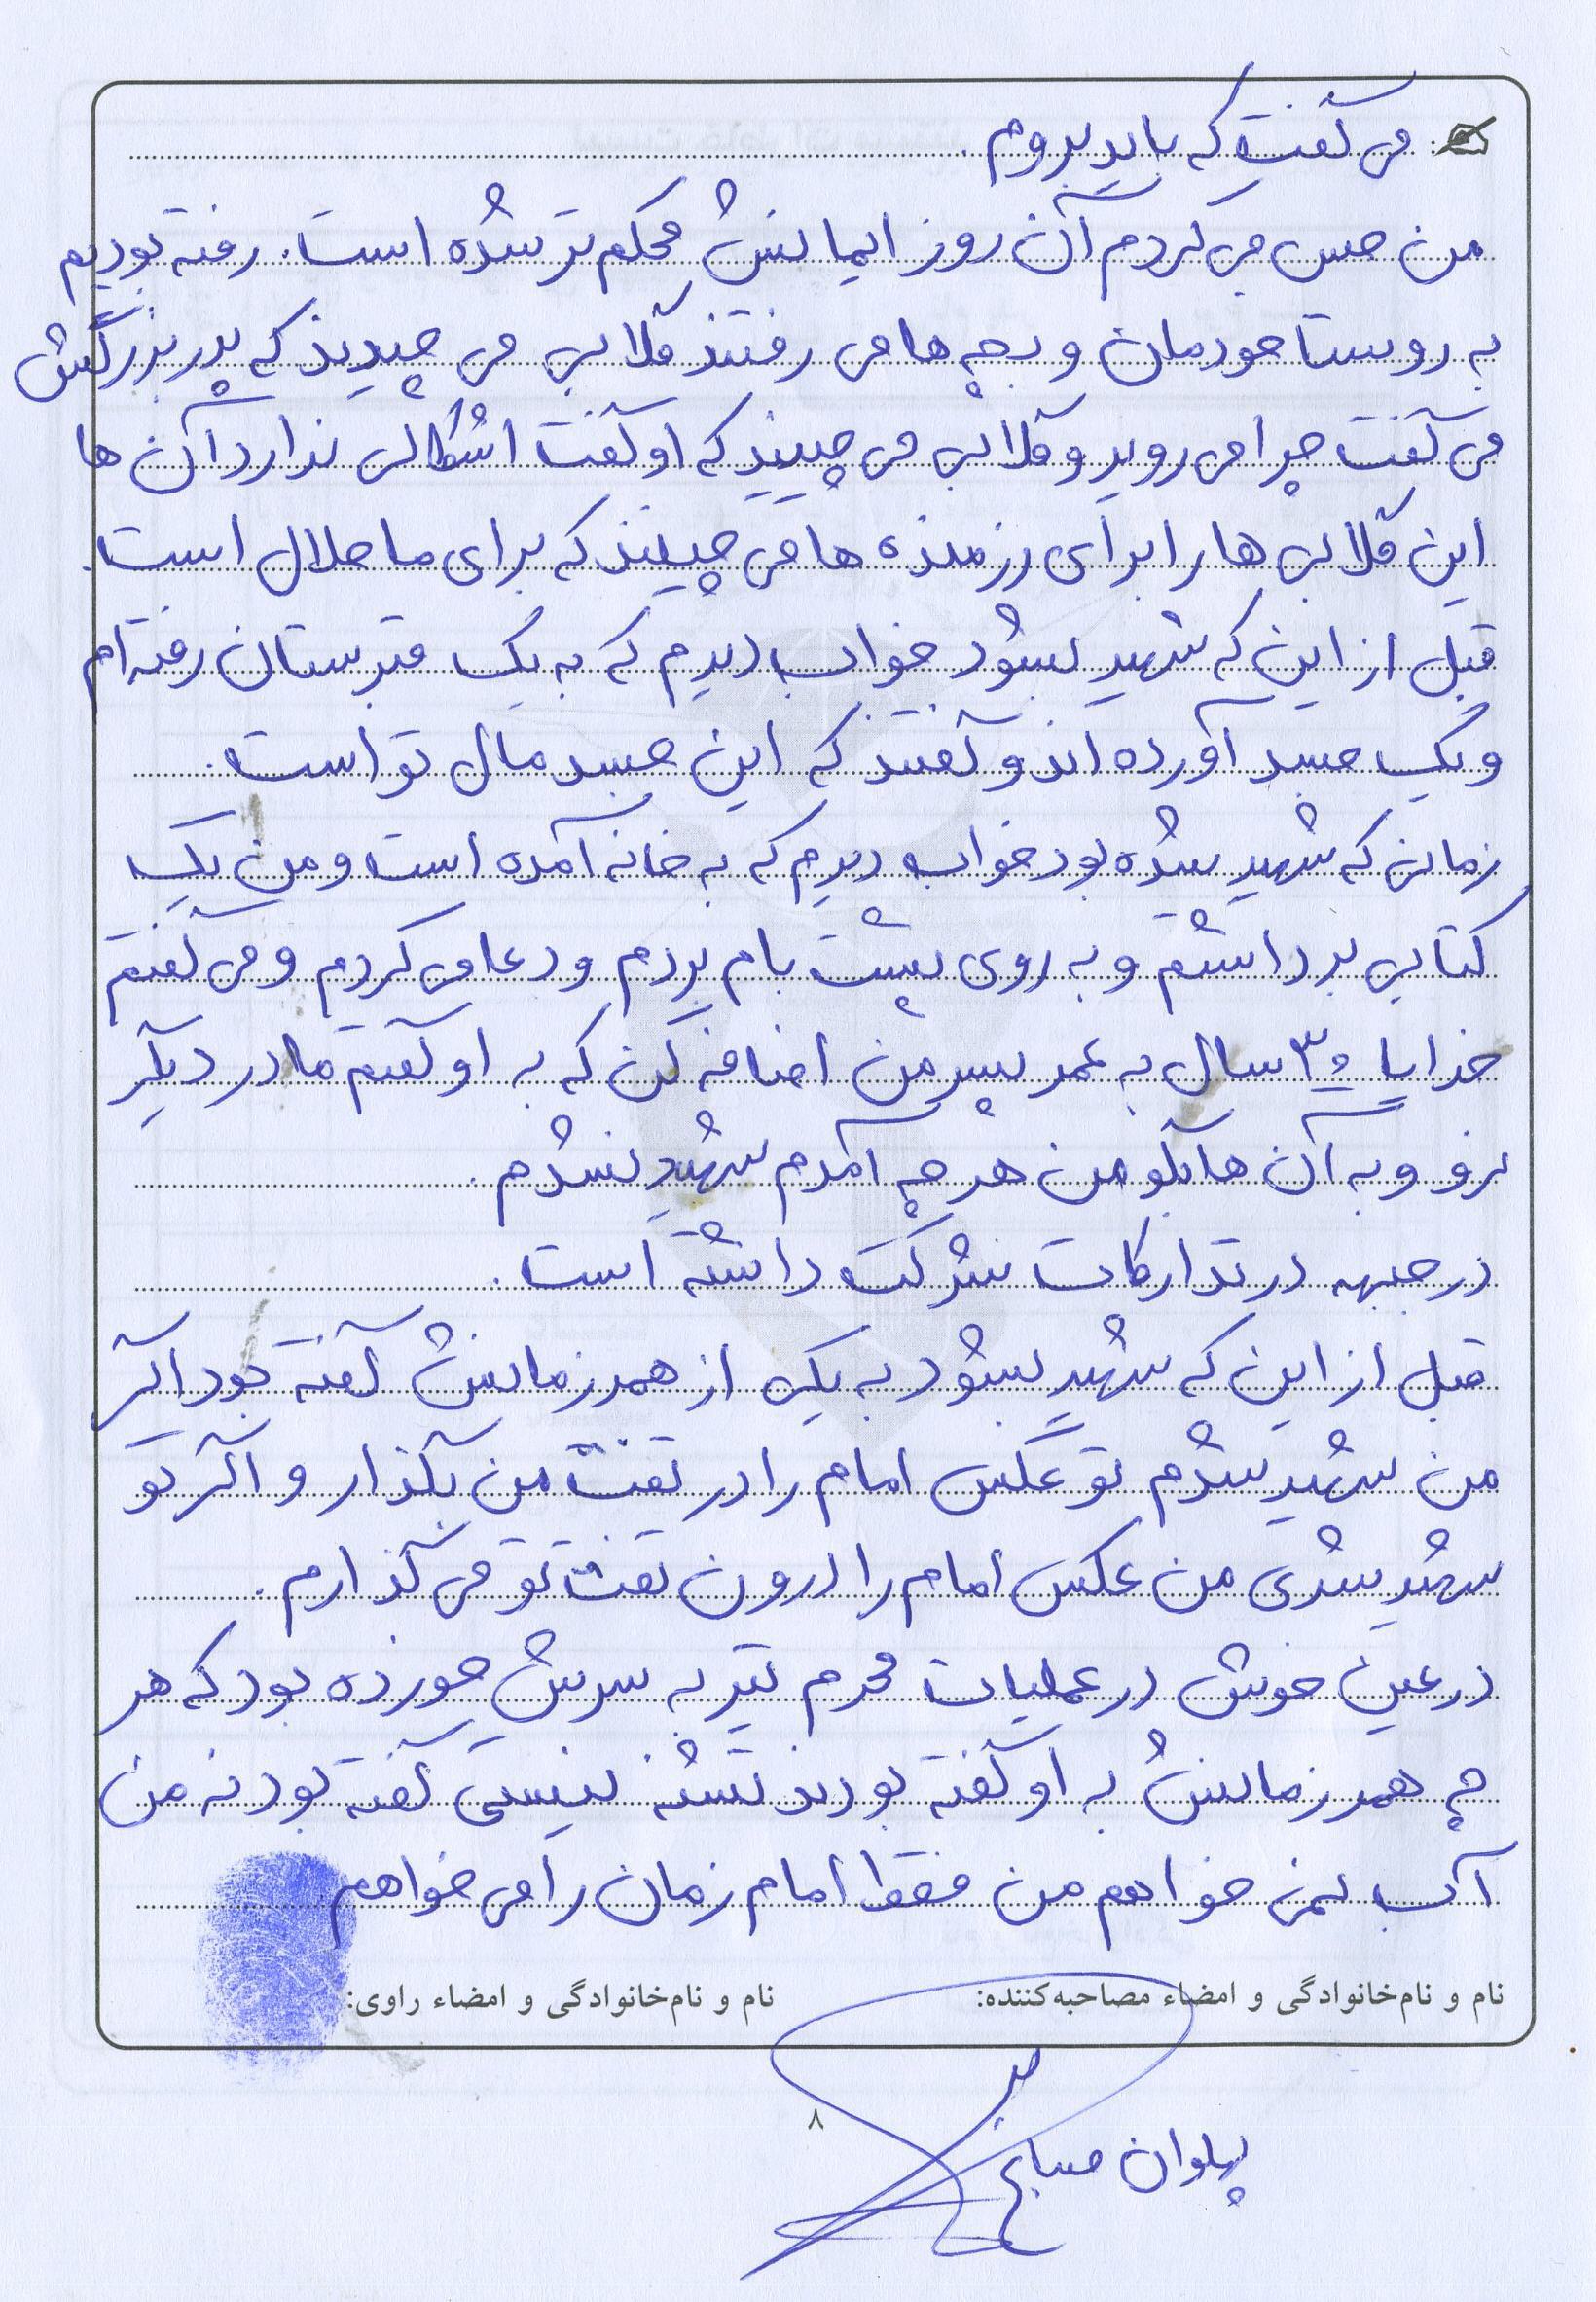 می گفت که باید بروم.
من حس می کردم آن روز ایمانش محکم تر شده است. رفته بودیم
به روستا خودمان و بچه ها می رفتند گلابی می چیدند که پدر بزرگش
می گفت چرا می روید و گلابی می چینید که او گفت اشکالی ندارد آن ها
این گلابی ها را برای رزمنده ها می چینند که برای ما حلال است.
قبل از این که شهید بشود خواب دیدم که به یک قبرستان رفته ام
و یک جسد آورده اند و گفتند که این جسد مال تو است.
زمانی که شهید شده بود خواب دیدم که به خانه آمده است و من یک
کتابی برداشتم و به روی پشت بام بردم و دعا می کردم و می گفتم
خدایا ۳۰ سال به عمر پسر من اضافه کن که به او گفتم مادر دیگر
نرو و به آن ها بگو من هر چه آمدم شهید نشدم.
در جبهه در تدارکات شرکت داشته است.
قبل از این که شهید بشود به یکی از همرزمانش گفته بود اگر
من شهید شدم تو عکس امام را در کفن من بگذار و اگر تو
شهید شدی من عکس امام را درون کفن تو می گذارم.
در عین خوش در عملیات محرم تیر به سرش خورده بود که هر
چه همرزمانش به او گفته بودند تشنه نیستی گفته بود نه من
آب نمی خواهم من فقط امام زمان را می خواهم.
نام و نام‌خانوادگی و امضاء مصاحبه‌کننده: نام و نام‌خانوادگی و امضاء راوی:
۸
پهلوان